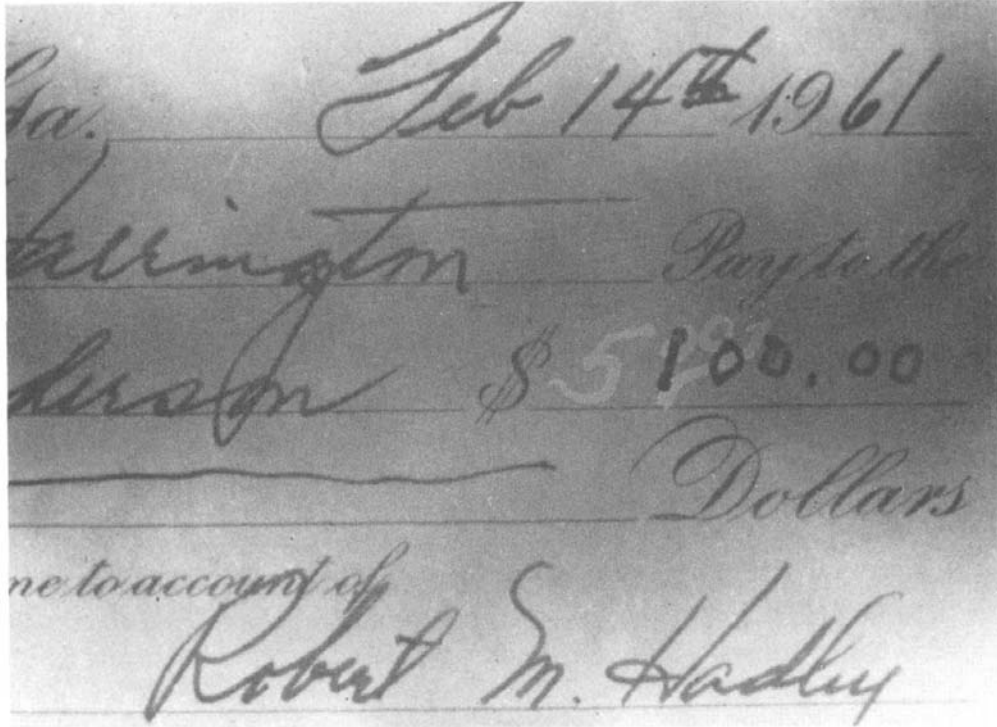 Ga. Feb 14th 1961
arrington Pay to the
derson $ 100.00
Dollars
me to account of
Robert M. Hadley